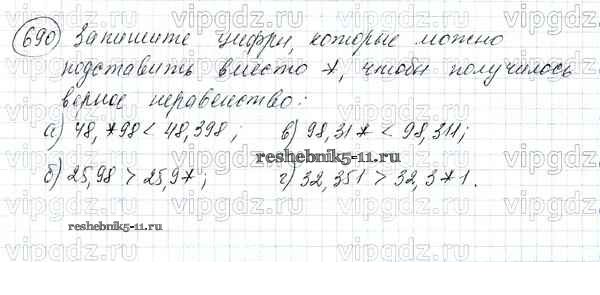 690 Запишите цифры, которые можно
подставить вместо *, чтобы получилось
верное неравенство:
а) 48,*98 < 48,398; в) 98,31* < 98,311;
reshebnik5-11.ru
б) 25,98 > 25,9*; г) 32,351 > 32,3*1.
reshebnik5-11.ru
vipgdz.ru vipgdz.ru vipgdz.ru vipgdz.ru